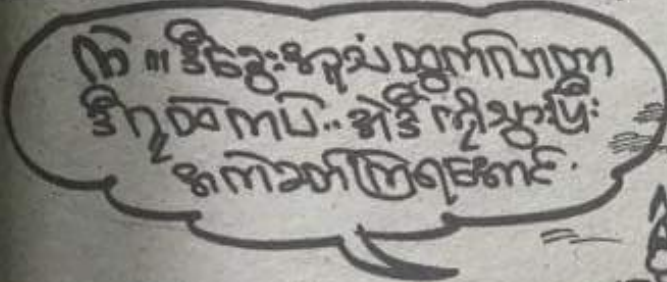 ကဲ ။ ဒီခွေးအူသံ ထွက်လာတာ
ဒီဂူထဲကပဲ.. အဲဒီ ကိုသွားပြီး
အကဲခတ်ကြရအောင်.